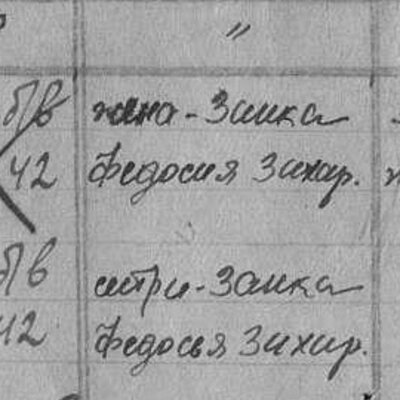 "
б/в жена - Заика
42 Федосия Захар.
б/в сестра - Заика
42 Федосья Захар.